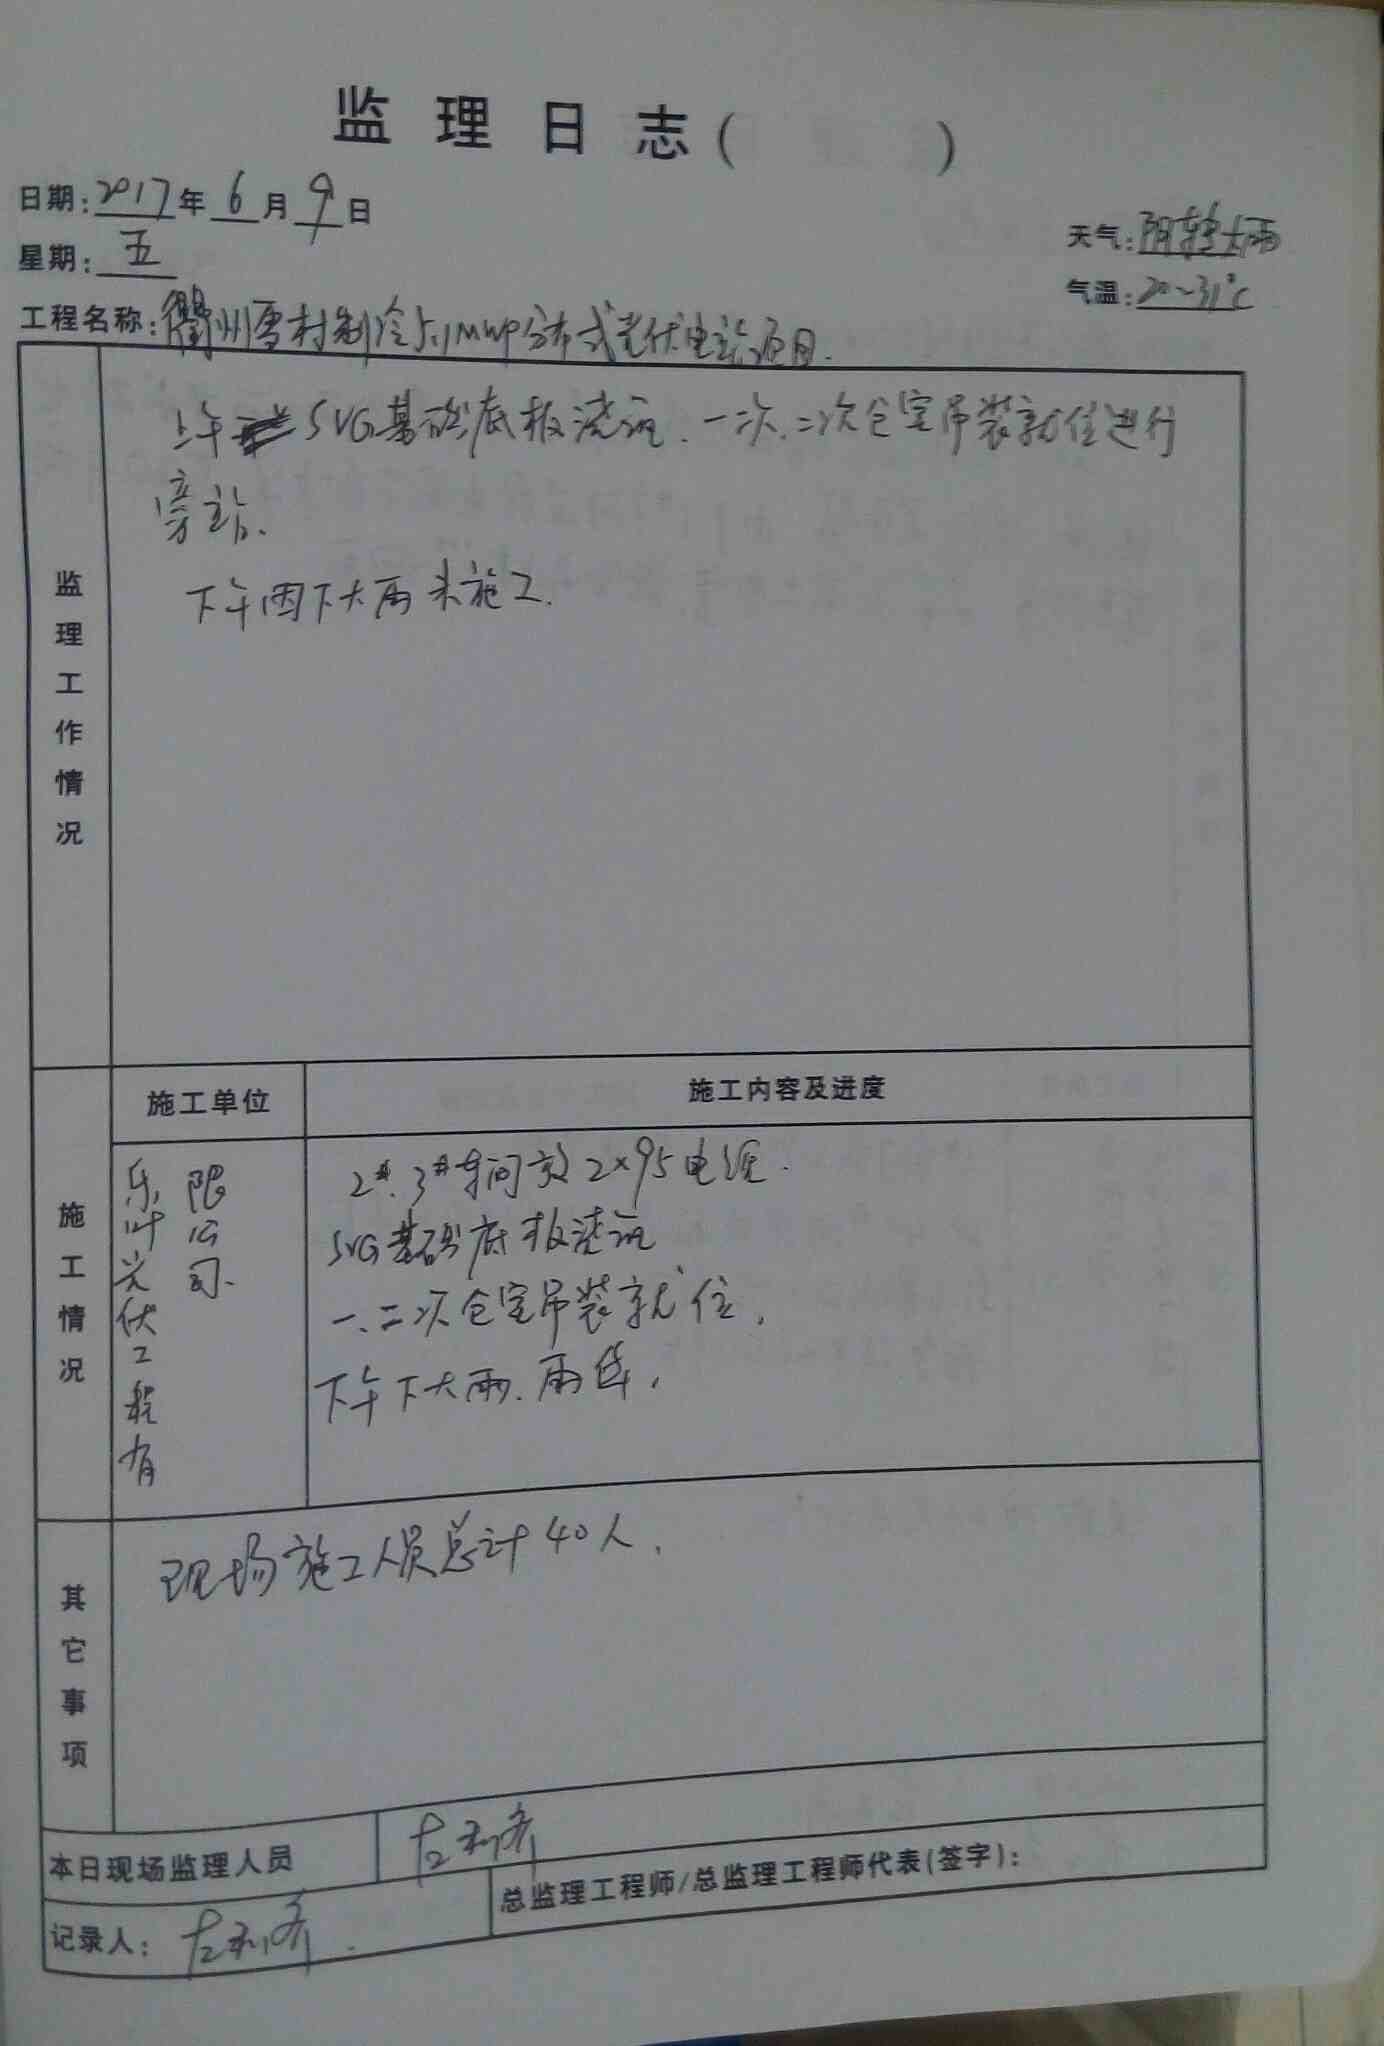 监理日志(          )
日期:2017年6月9日
星期:五
天气:阴转大雨
气温:20~31℃
工程名称:衢州雪村制冷5.1MWP分布式光伏电站项目.
监理工作情况
上午 SVG基础底板浇注、一次、二次仓室吊装就位进行
旁站、
下午因下大雨未施工.
施工情况
施工单位
施工内容及进度
乐叶光伏工程有
限公司.
2#.3#车间放2×95电缆.
SVG基础底板浇注
一、二次仓室吊装就位,
下午下大雨.雨停,
其它事项
现场施工人员总计40人.
本日现场监理人员
总监理工程师/总监理工程师代表(签字):
记录人: